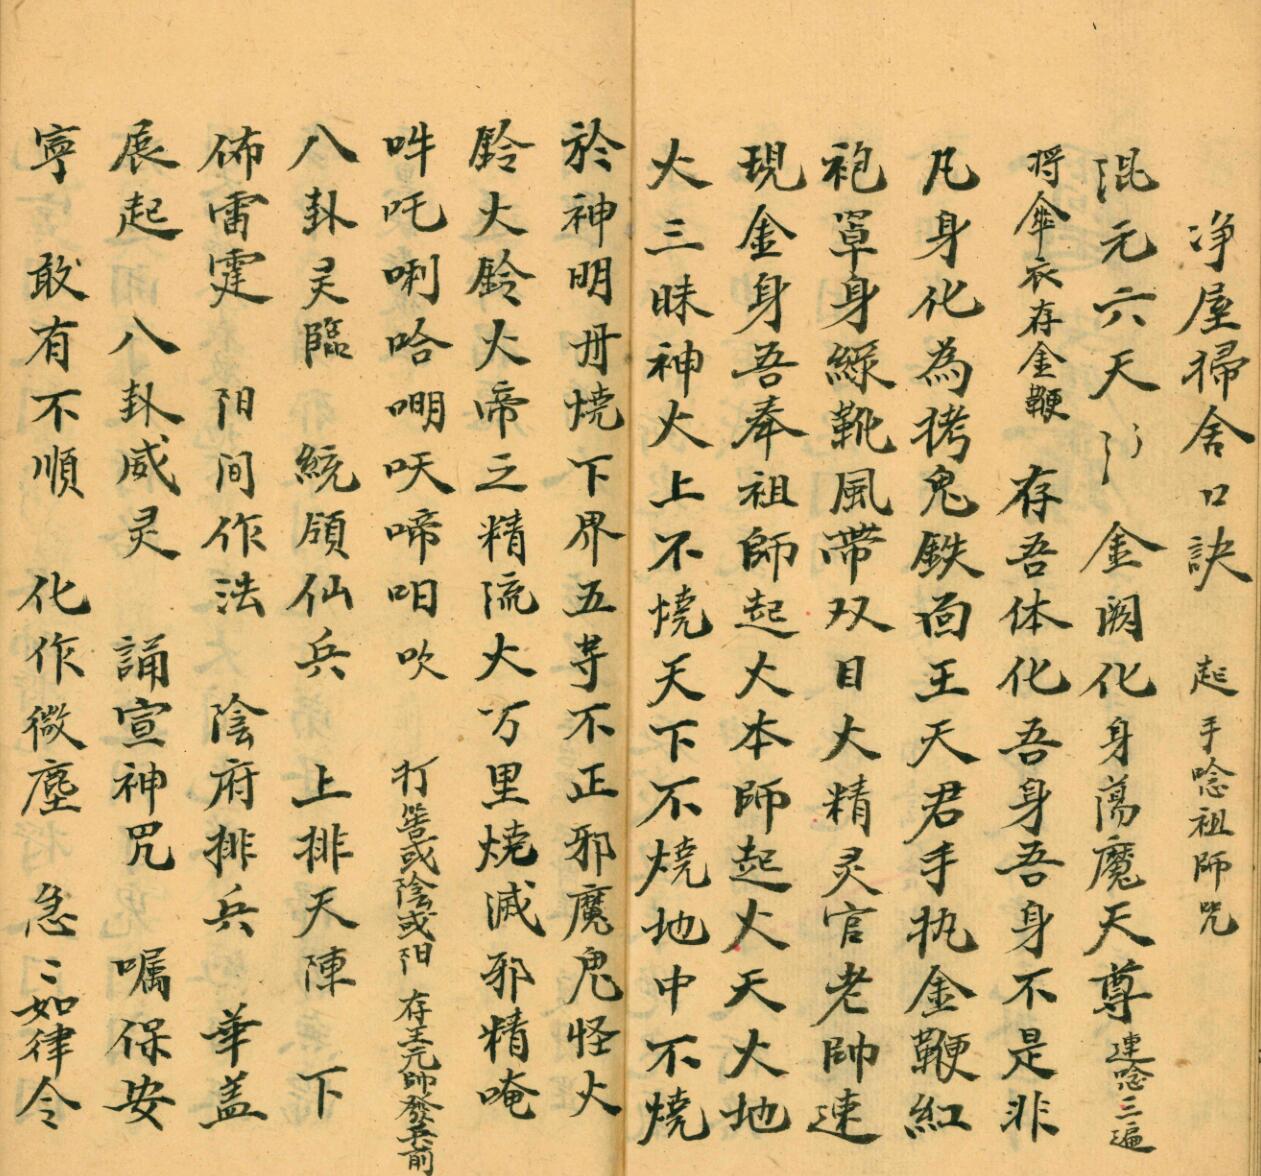 净屋掃舍口訣 起手唸祖師咒
混元六天 金阙化身蕩魔天尊 連唸三遍
将傘衣存金鞭 存吾体化吾身吾身不是非
凡身化為拷鬼鉄面王天君手执金鞭紅
袍罩身緑靴風帶双目火精灵官老帥速
現金身吾奉祖師起火本師起火天火地
火三昧神火上不燒天下不燒地中不燒
於神明毌燒下界五等不正邪魔鬼怪火
鈴火鈴火帝之精流火万里燒滅邪精唵
吽吒唎哈嘲呋啼呾吹 打筶或陰或阳 存王元帥發兵前
八卦灵臨 統領仙兵 上排天陣 下
佈雷霆 阳间作法 陰府排兵 華盖
展起 八卦咸灵 誦宣神咒 嘱保安
寧 敢有不順 化作微塵 急〻如律令